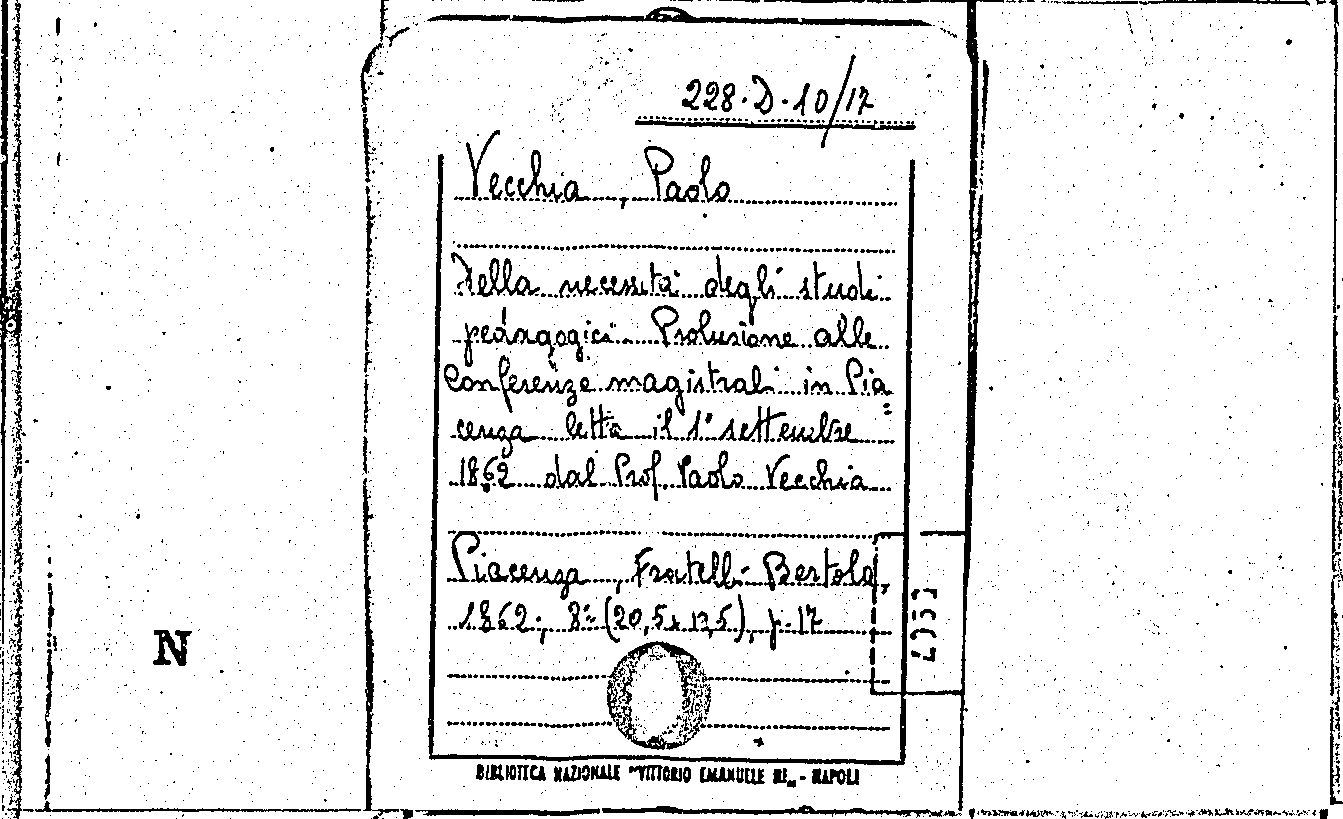 228.D.10/17
Vecchia, Paolo
Della necessità degli studi
pedagogici. Prolusione alle
Conferenze magistrali in Pia=
cenza letta il 1° settembre
1862 dal Prof. Paolo Vecchia
Piacenza, Fratelli Bertola,
1862; 8° (20,5x13,5), p. 17
N
BIBLIOTECA NAZIONALE "VITTORIO EMANUELE III„ - NAPOLI